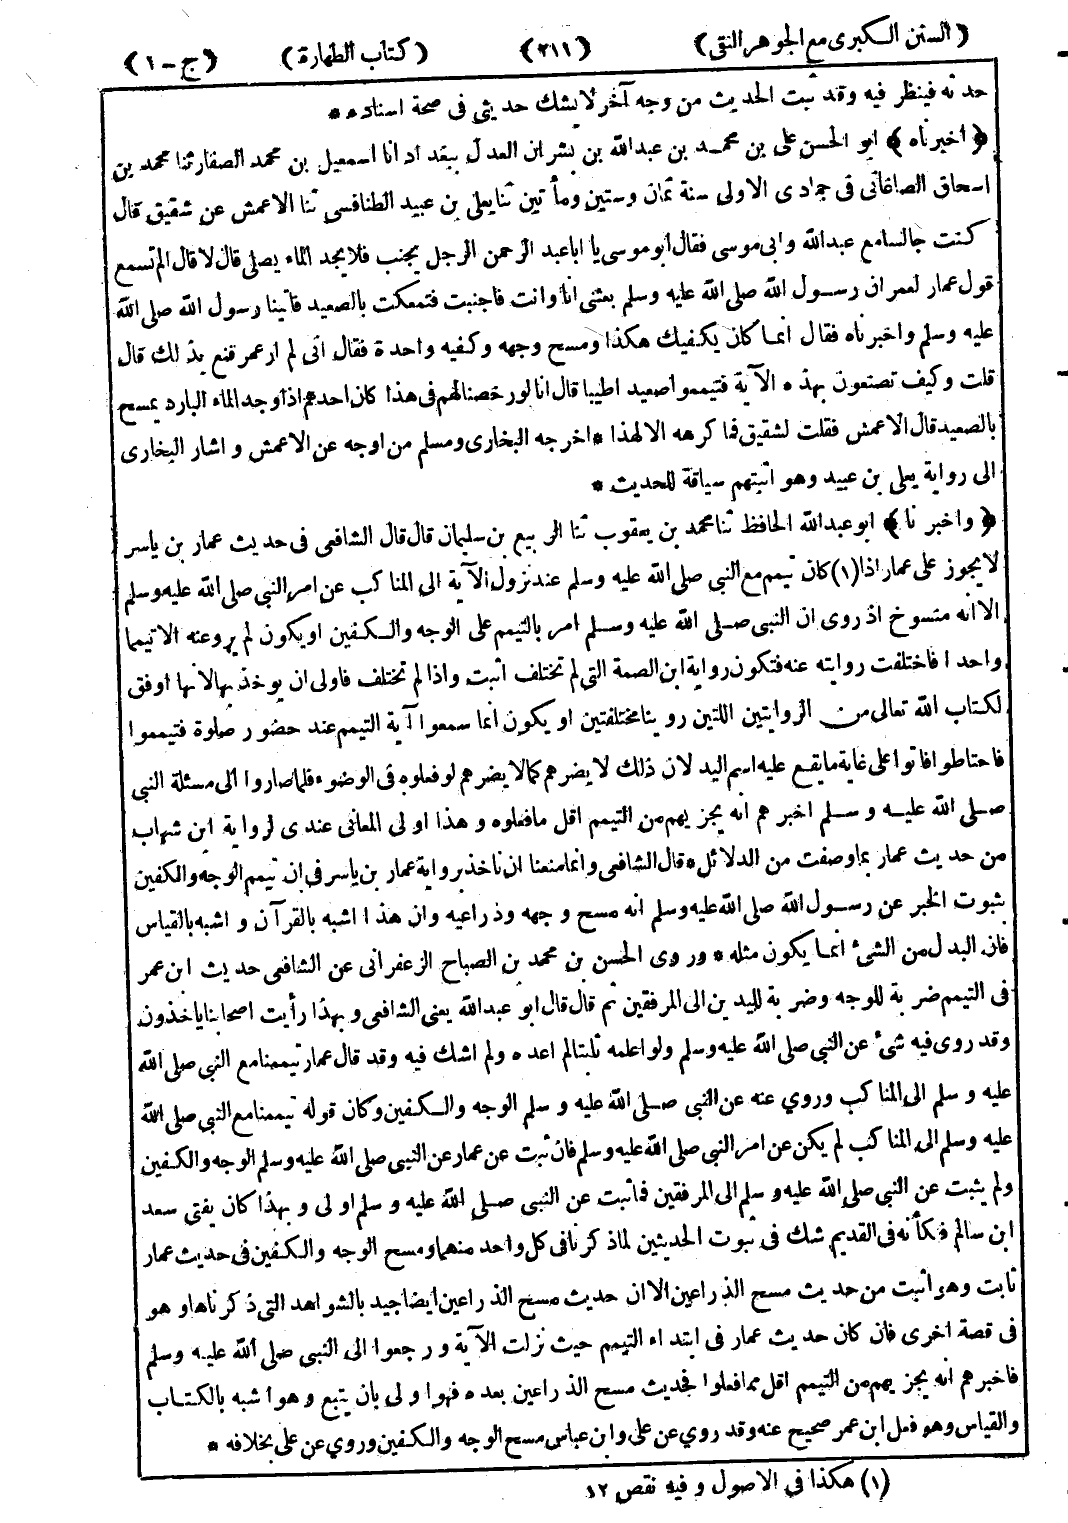 ﴿السنن الكبرى مع الجوهر النقى﴾ ﴿٢١١﴾ ﴿كتاب الطهارة﴾ ﴿ج - ١﴾
حدثه فينظر فيه وقد ثبت الحديث من وجه آخر لا يشك حديثى فى صحة اسناده *
﴿اخبرناه﴾ ابو الحسن على بن محمد بن عبدالله بن بشران العدل ببغداد انا اسمعيل بن محمد الصفار ثنا محمد بن
اسحاق الصاغانى فى جمادى الاولى سنة ثمان وستين ومأتين ثنا يعلى بن عبيد الطنافسى ثنا الاعمش عن شقيق قال
كنت جالسا مع عبدالله وابى موسى فقال ابو موسى يا ابا عبد الرحمن الرجل يجنب فلا يجد الماء يصلى قال لا قال الم تسمع
قول عمار لعمر ان رسول الله صلى الله عليه وسلم بعثنى انا وانت فاجنبت فتمعكت بالصعيد فاتينا رسول الله صلى الله
عليه وسلم واخبرناه فقال انما كان يكفيك هكذا ومسح وجهه وكفيه واحدة فقال انى لم ار عمر قنع بذلك قال
قلت وكيف تصنعون بهذه الآية فتيمموا صعيدا طيبا قال انا لو رخصنا لهم فى هذا كان احدهم اذا وجد الماء البارد يمسح
بالصعيد قال الاعمش فقلت لشقيق فما كرهه الا لهذا * اخرجه البخارى ومسلم من اوجه عن الاعمش واشار البخارى
الى رواية يعلى بن عبيد وهو اثبتهم سياقة للحديث *
﴿واخبرنا﴾ ابو عبدالله الحافظ ثنا محمد بن يعقوب ثنا الربيع بن سليمان قال قال الشافعى فى حديث عمار بن ياسر
لا يجوز على عمار اذا (١) كان تيمم مع النبى صلى الله عليه وسلم عند نزول الآية الى المناكب عن امر النبى صلى الله عليه وسلم
الا انه منسوخ اذ روى ان النبى صلى الله عليه وسلم امر بالتيمم على الوجه والكفين او يكون لم يرو عنه الا تيمما
واحدا فاختلفت روايته عنه فتكون رواية ابن الصمة التى لم تختلف اثبت واذا لم تختلف فاولى ان يوخذ بها لانها اوفق
لكتاب الله تعالى من الروايتين اللتين رويتا مختلفتين او يكون انما سمعوا آية التيمم عند حضور صلوة فتيمموا
فاحتاطوا فاتوا على غاية ما يقع عليه اسم اليد لان ذلك لا يضرهم كما لا يضرهم لو فعلوه فى الوضوء فلما صاروا الى مسئلة النبى
صلى الله عليه وسلم اخبرهم انه يجزيهم من التيمم اقل ما فعلوه وهذا اولى المعانى عندى لرواية ابن شهاب
من حديث عمار بما وصفت من الدلائل * قال الشافعى وانما منعنا ان ناخذ برواية عمار بن ياسر فى ان تيمم الوجه والكفين
بثبوت الخبر عن رسول الله صلى الله عليه وسلم انه مسح وجهه وذراعيه وان هذا اشبه بالقرآن واشبه بالقياس
فان البدل من الشئ انما يكون مثله * وروى الحسن بن محمد بن الصباح الزعفرانى عن الشافعى حديث ابن عمر
فى التيمم ضربة للوجه وضربة لليدين الى المرفقين ثم قال قال ابو عبدالله يعنى الشافعى وبهذا رأيت اصحابنا ياخذون
وقد روى فيه شئ عن النبى صلى الله عليه وسلم ولو اعلمه ثابتا لم اعده ولم اشك فيه وقد قال عمار تيممنا مع النبى صلى الله
عليه وسلم الى المناكب وروي عنه عن النبى صلى الله عليه وسلم الوجه والكفين وكان قوله تيممنا مع النبى صلى الله
عليه وسلم الى المناكب لم يكن عن امر النبى صلى الله عليه وسلم فان ثبت عن عمار عن النبى صلى الله عليه وسلم الوجه والكفين
ولم يثبت عن النبى صلى الله عليه وسلم الى المرفقين فما ثبت عن النبى صلى الله عليه وسلم اولى وبهذا كان يفتى سعد
ابن سالم فكأنه فى القديم شك فى ثبوت الحديثين لما ذكرنا فى كل واحد منهما ومسح الوجه والكفين فى حديث عمار
ثابت وهو اثبت من حديث مسح الذراعين الا ان حديث مسح الذراعين ايضا جيد بالشواهد التى ذكرناها وهو
فى قصة اخرى فان كان حديث عمار فى ابتداء التيمم حيث نزلت الآية ورجعوا الى النبى صلى الله عليه وسلم
فاخبرهم انه يجزيهم من التيمم اقل مما فعلوا فحديث مسح الذراعين بعده فهو اولى بان يتبع وهو اشبه بالكتاب
والقياس وهو فعل ابن عمر صحيح عنه وقد روي عن على وابن عباس مسح الوجه والكفين وروي عن على بخلافه *
(١) هكذا فى الاصول وفيه نقص ١٢